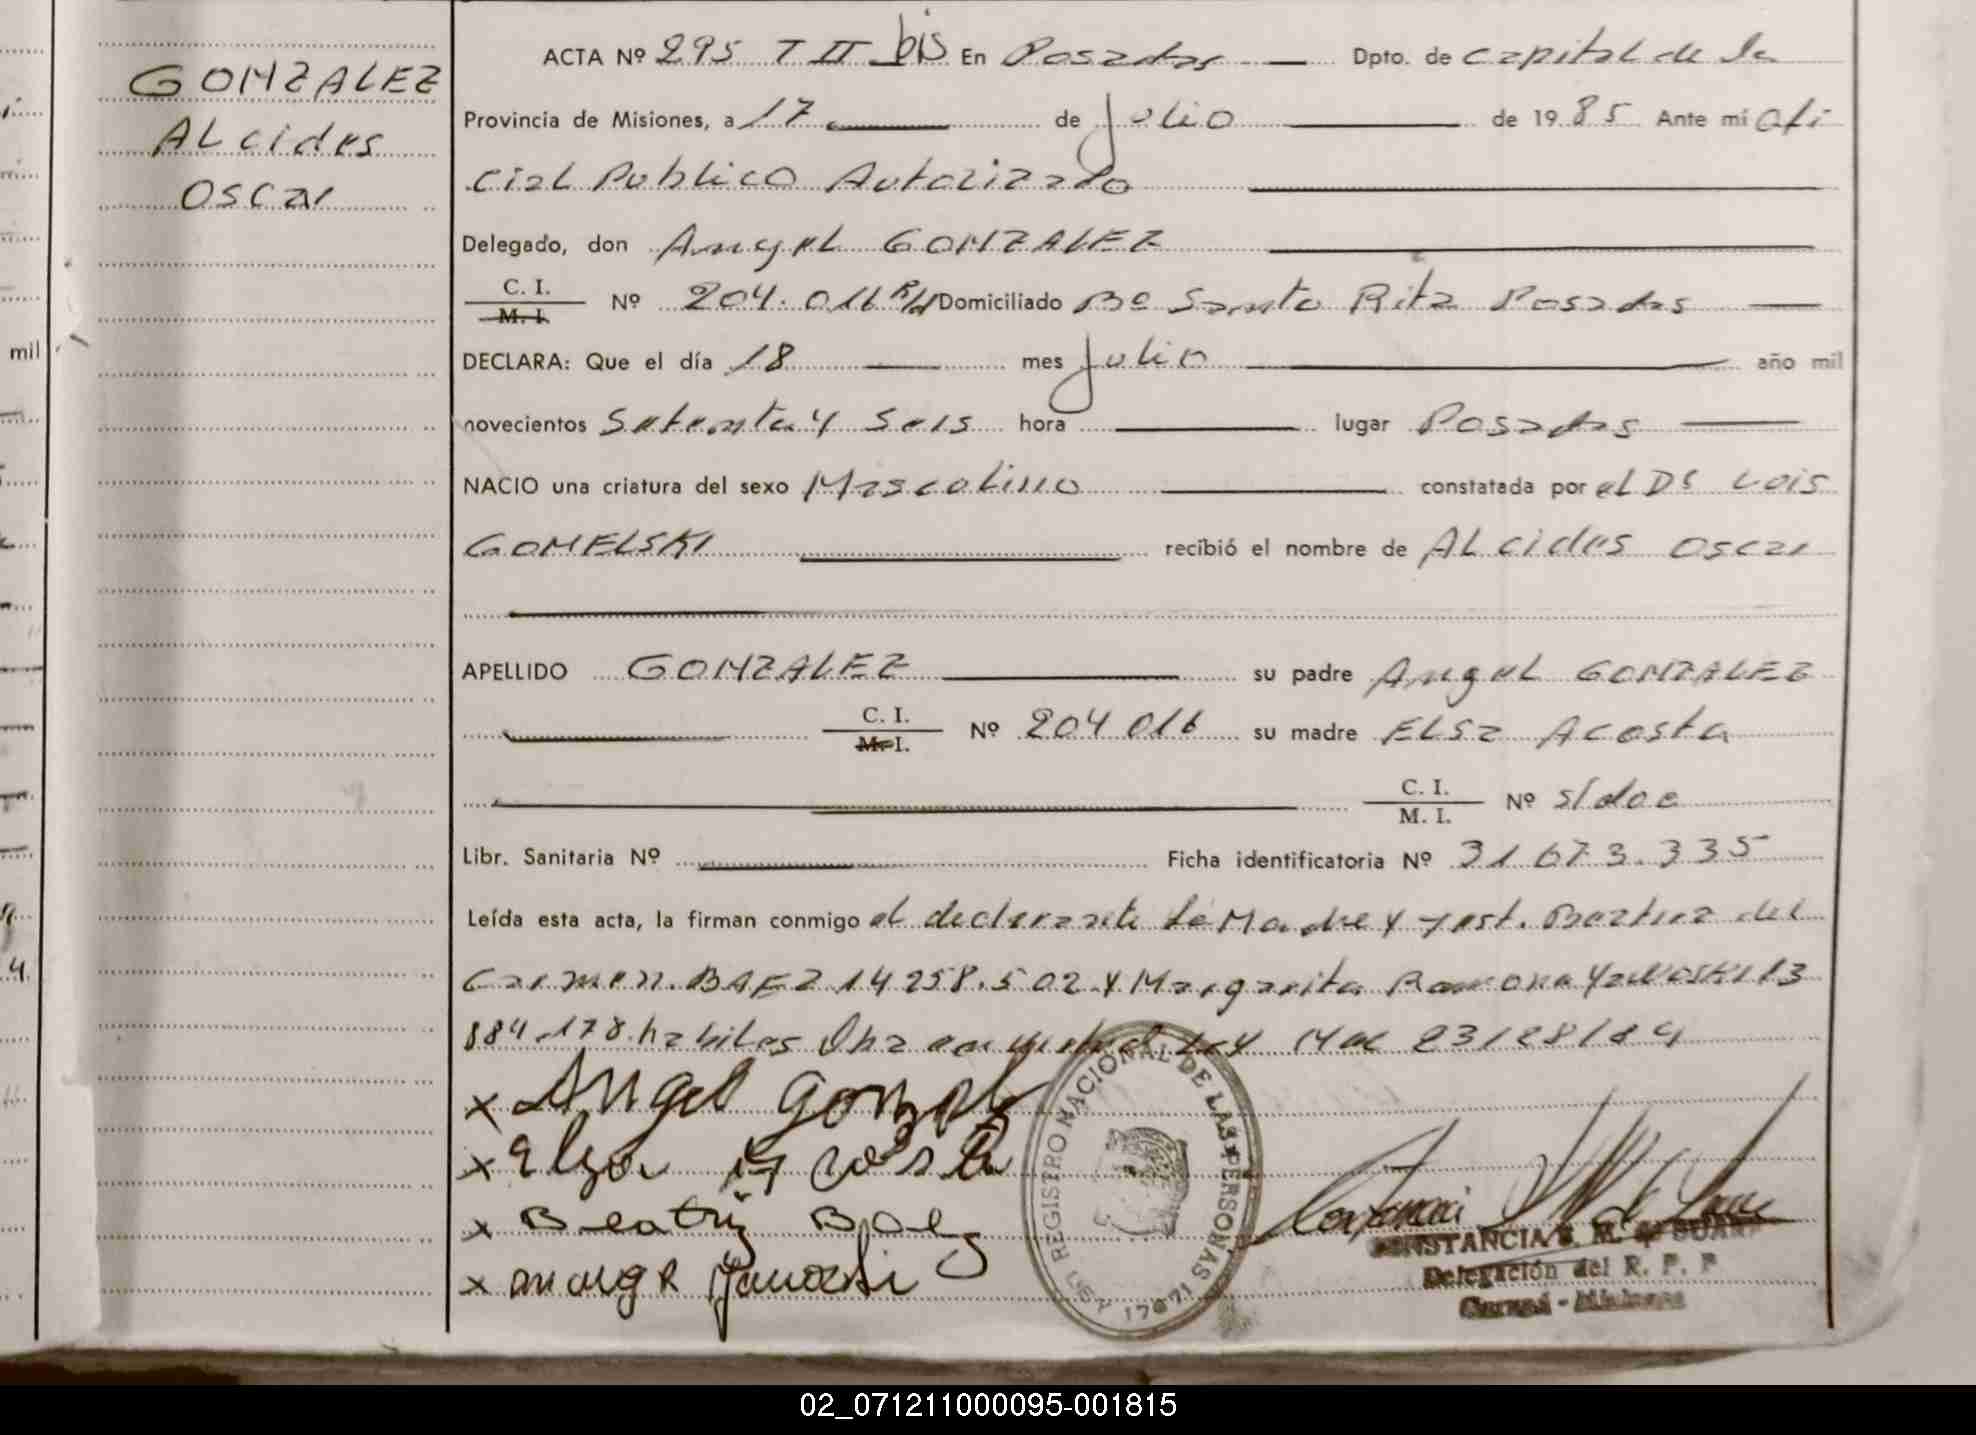 GONZALEZ
ALcides
OSCAR
mil
ACTA Nº 295 T II bis En Posadas Dpto. de Capital de la
Provincia de Misiones, a 17 de Julio de 1985 Ante mí Ofi
cial Publico Autorizado
Delegado, don Angel GONZALEZ
C. I.
M. I.
Nº 204.016 Domiciliado Bº Santa Rita Posadas
DECLARA: Que el día 18 mes Julio año mil
novecientos Setenta y Seis hora lugar Posadas
NACIO una criatura del sexo Masculino constatada por el Dr Luis
GOMELSKI recibió el nombre de ALcides OSCAR
APELLIDO GONZALEZ su padre Angel GONZALEZ
C. I.
M. I.
Nº 204 016 su madre ELSA Acosta
C. I.
M. I.
Nº s/doc
Libr. Sanitaria Nº Ficha identificatoria Nº 31.673.335
Leída esta acta, la firman conmigo el declarante la Madre y test. Beatriz del
Carmen BAEZ 14.258.502 y Margarita Ramona 13
884.178 habiles Ley 23128/84
x Angel Gonzalez
x Elsa Acosta
x Beatriz Baez
x
REGISTRO NACIONAL DE LAS PERSONAS
LEY 17671
CONSTANCIA S. M. de SUAR
Delegación del R. P. P
Garupá - Misiones
02_071211000095-001815